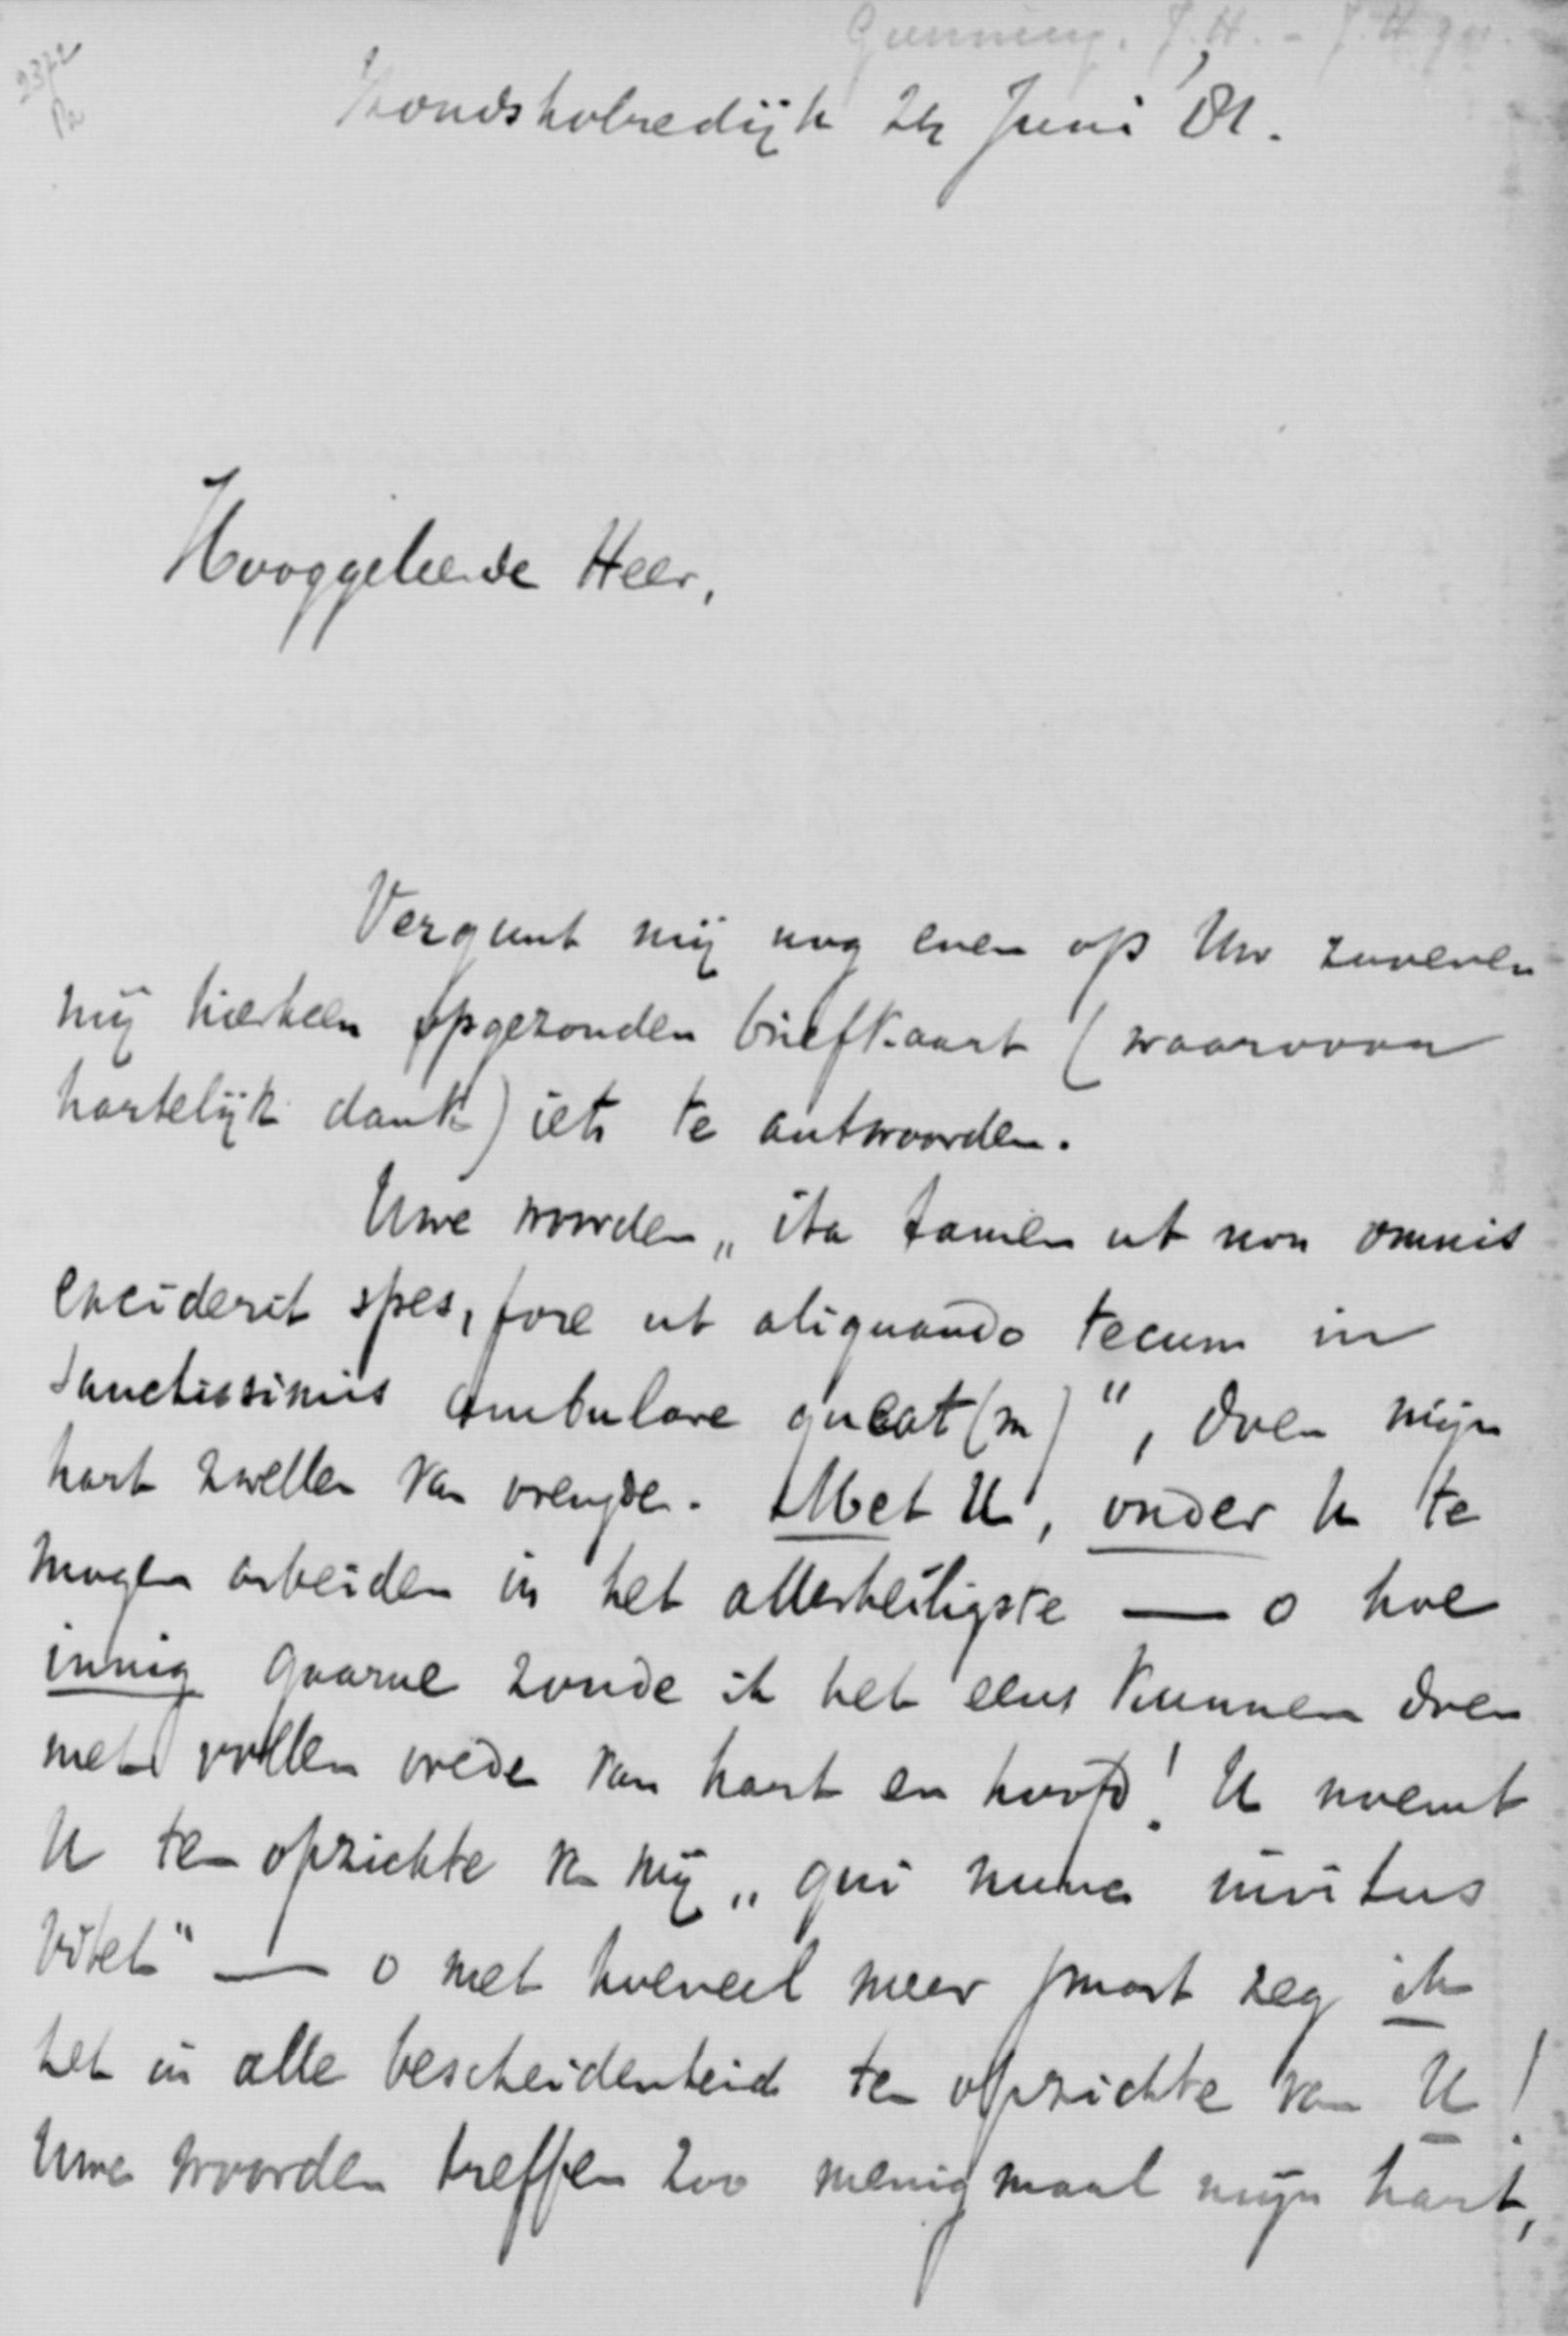 Gunning, J.H. - J.H.zn.
2372
Hondsholredijk 24 Juni '81.
Hooggeleerde Heer,
Vergunt mij nog even op Uw zooeven
mij hierheen opgezonden briefkaart (waarvoor
hartelijk dank) iets te antwoorden.
Uwe woorden „ita tamen ut non omnis
exciderit spes, fore ut aliquando tecum in
Sanctissimis ambulare queat(m)", doen mijn
hart zwellen van vreugde. Met U, onder U te
mogen arbeiden in het allerheiligste — o hoe
innig gaarne zoude ik het eens kunnen doen
met vollen vrede van hart en hoofd! U noemt
U ten opzichte v. mij „qui nunc invitus
vitet" — o met hoeveel meer smart zeg ik
het in alle bescheidenheid ten opzichte van U!
Uwe woorden treffen zoo menigmaal mijn hart,